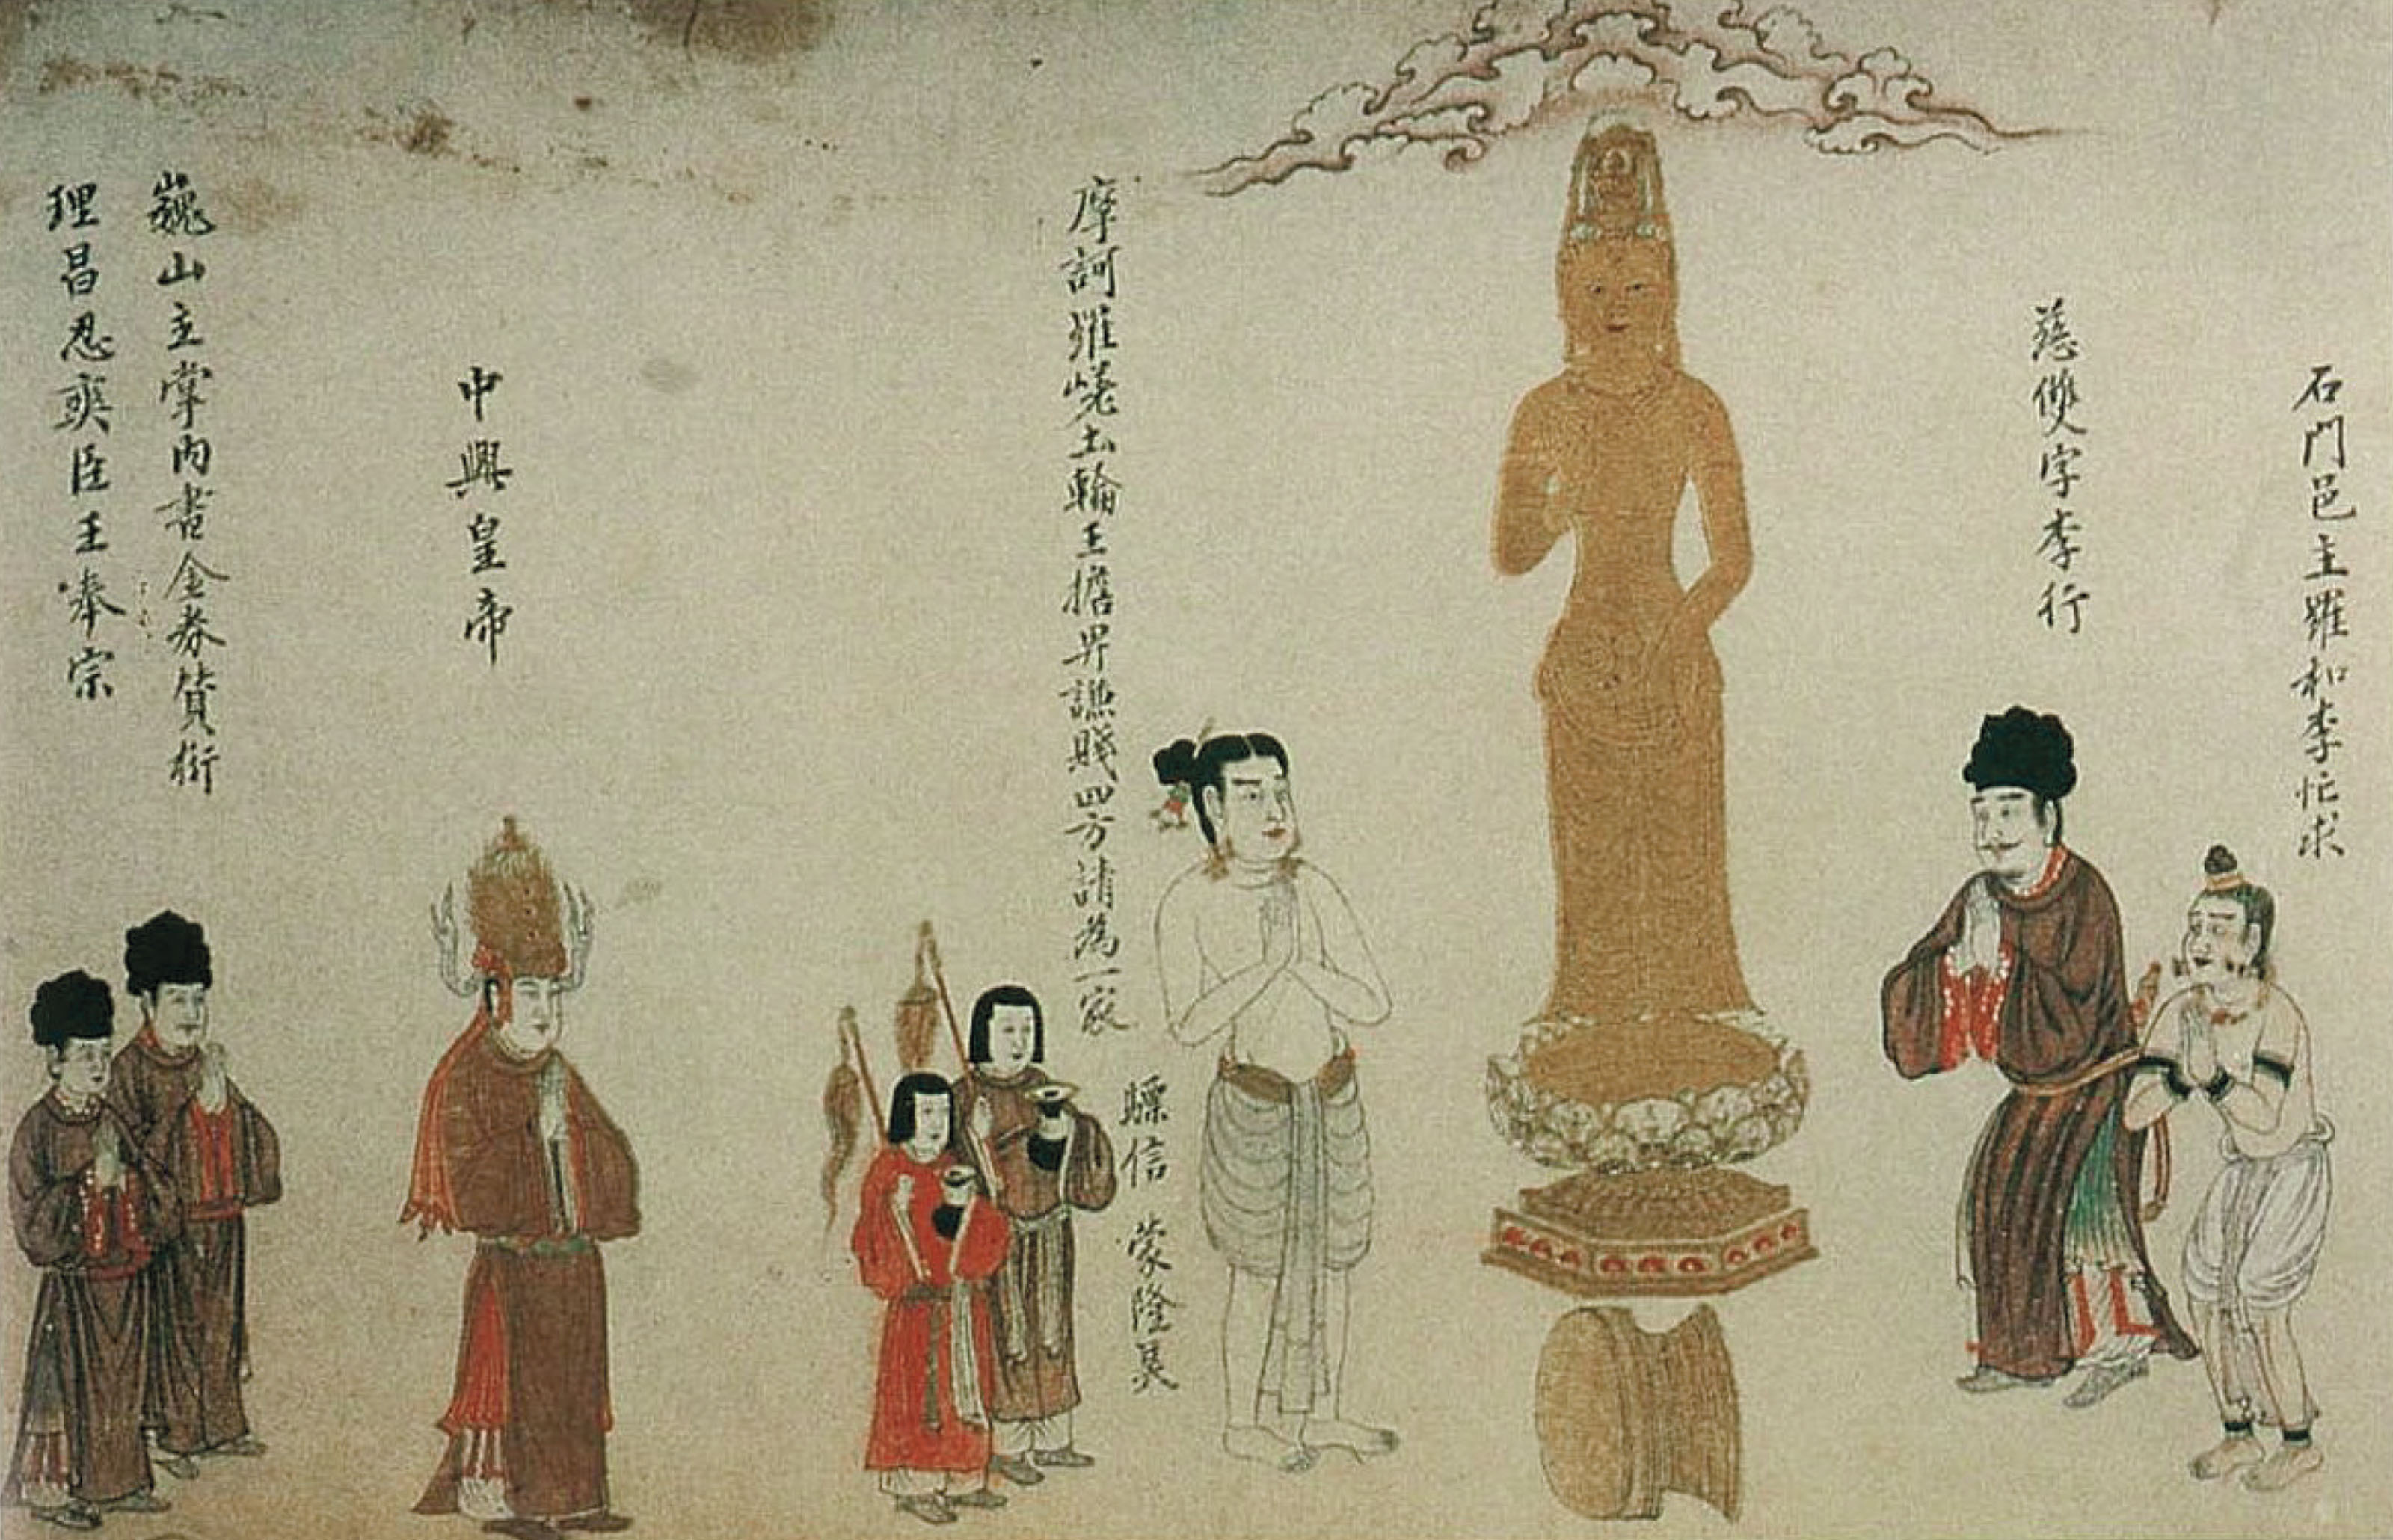 石門邑主羅和李忙求
慈雙字李行
摩訶羅嵯土輪王擔界謙賤四方請為一家
驃信 蒙隆昊
中興皇帝
巍山主掌內書金券賛衛
理昌忍爽臣王奉宗